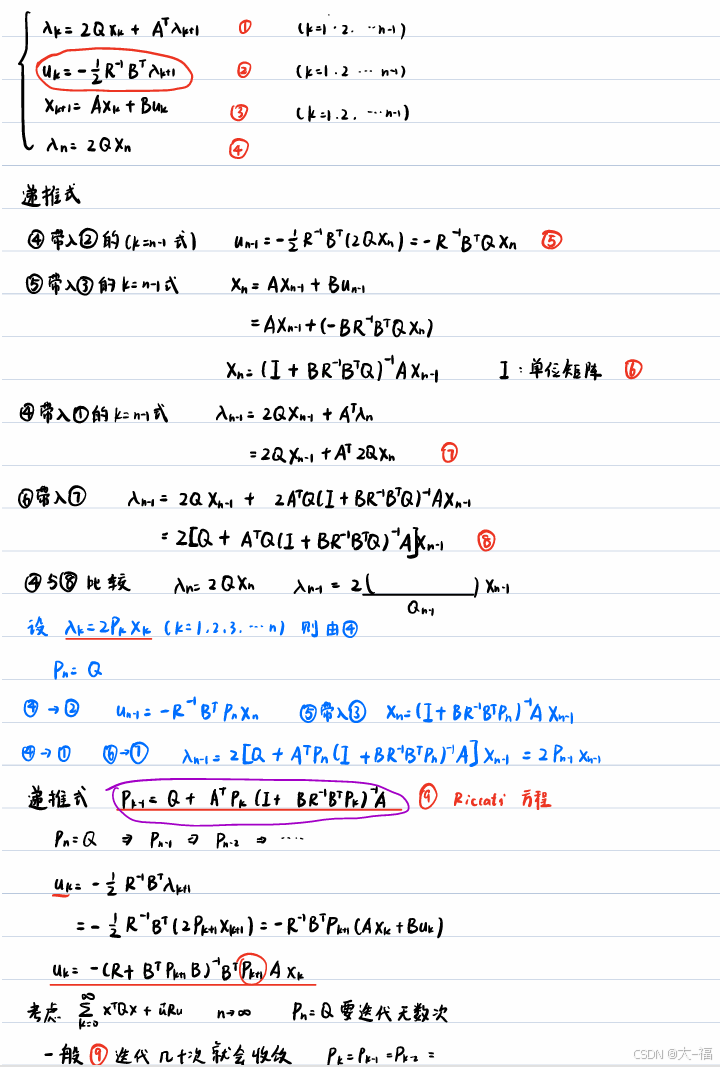 λk = 2Qxk + Aᵀλk+1 ① (k=1·2. ···n-1)
uk = -½R⁻¹Bᵀλk+1 ② (k=1.2 ··· n-1)
xk+1 = Axk + Buk ③ (k=1.2. ···n-1)
λn = 2Qxn ④
递推式
④带入②的(k=n-1式) un-1 = -½R⁻¹Bᵀ(2Qxn) = -R⁻¹BᵀQxn ⑤
⑤带入③的k=n-1式 xn = Axn-1 + Bun-1
= Axn-1 + (-BR⁻¹BᵀQxn)
xn = (I + BR⁻¹BᵀQ)⁻¹Axn-1 I:单位矩阵 ⑥
④带入①的k=n-1式 λn-1 = 2Qxn-1 + Aᵀλn
= 2Qxn-1 + Aᵀ2Qxn ⑦
⑥带入⑦ λn-1 = 2Qxn-1 + 2AᵀQ(I + BR⁻¹BᵀQ)⁻¹Axn-1
= 2[Q + AᵀQ(I + BR⁻¹BᵀQ)⁻¹A]xn-1 ⑧
④与⑧比较 λn = 2Qxn λn-1 = 2(________)xn-1
Qn-1
设 λk = 2Pkxk (k=1.2.3. ···n) 则由④
Pn = Q
④→② un-1 = -R⁻¹BᵀPnxn ⑤带入③ xn = (I + BR⁻¹BᵀPn)⁻¹Axn-1
④→① ⑥→⑦ λn-1 = 2[Q + AᵀPn(I + BR⁻¹BᵀPn)⁻¹A]xn-1 = 2Pn-1xn-1
递推式 Pk-1 = Q + AᵀPk(I + BR⁻¹BᵀPk)⁻¹A ⑨ Riccati 方程
Pn = Q ⇒ Pn-1 ⇒ Pn-2 ⇒ ·····
uk = -½R⁻¹Bᵀλk+1
= -½R⁻¹Bᵀ(2Pk+1xk+1) = -R⁻¹BᵀPk+1(Axk + Buk)
uk = -(R + BᵀPk+1B)⁻¹BᵀPk+1Axk
考虑 ∞∑k=0 xᵀQx + uᵀRu n→∞ Pn = Q 要迭代无数次
一般⑨迭代几十次就会收敛 Pk = Pk-1 = Pk-2 =
CSDN @大-福